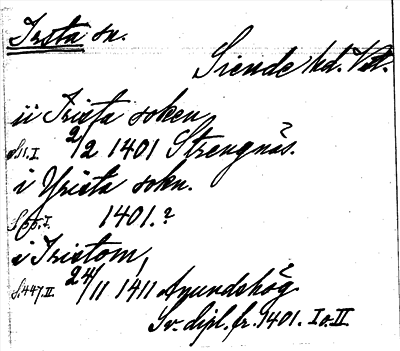 Irsta sn.
Siende hd. Vstl.
ii Irista soken
S. I. 2/2 1401 Strengnäs.
i Yrista sokn.
S. I. 1401.?
i Iristom,
S. 447. II. 24/11 1411 Agundshög
Sv. dipl. fr. 1401. I o. II